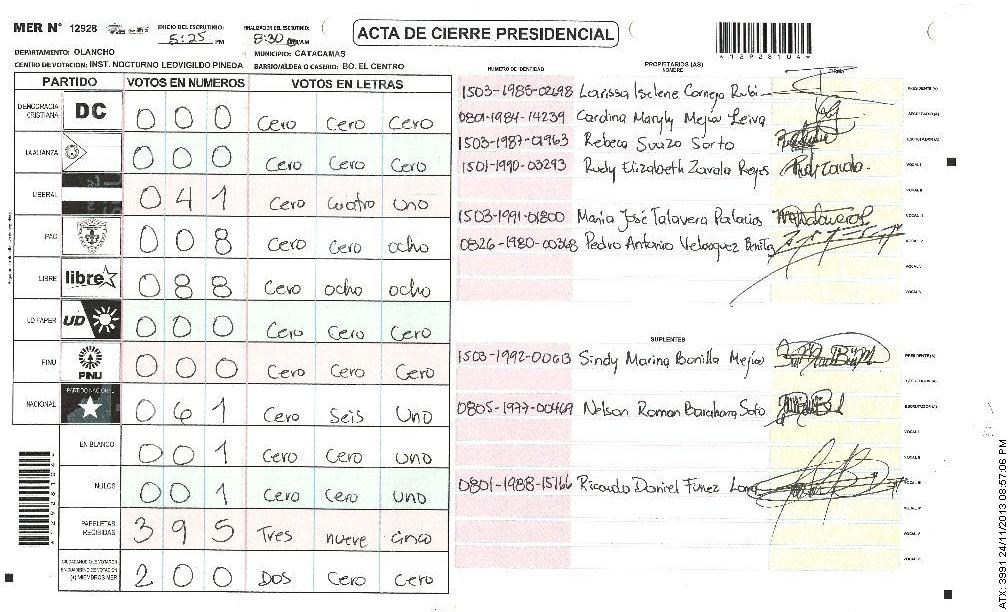 MER N° 12928 INICIO DEL ESCRUTINIO: 5:25 PM FINALIZACION DEL ESCRUTINIO: 8:30 PM/AM
ACTA DE CIERRE PRESIDENCIAL
*12928104*
DEPARTAMENTO: OLANCHO MUNICIPIO: CATACAMAS
CENTRO DE VOTACION: INST. NOCTURNO LEOVIGILDO PINEDA BARRIO/ALDEA O CASERIO: BO. EL CENTRO
PARTIDO VOTOS EN NUMEROS VOTOS EN LETRAS
DEMOCRACIA CRISTIANA DC 0 0 0 Cero Cero Cero
LA ALIANZA 0 0 0 Cero Cero Cero
LIBERAL 0 4 1 Cero Cuatro uno
PAC 0 0 8 Cero Cero ocho
LIBRE libre 0 8 8 Cero ocho ocho
UD FAPER UD 0 0 0 Cero Cero Cero
PINU PINU 0 0 0 Cero Cero Cero
NACIONAL PARTIDO NACIONAL 0 6 1 Cero Seis Uno
EN BLANCO 0 0 1 Cero Cero uno
NULOS 0 0 1 Cero Cero uno
PAPELETAS RECIBIDAS 3 9 5 Tres nueve cinco
CIUDADANOS QUE VOTARON EN CUADERNO DE VOTACION (+) MIEMBROS MER 2 0 0 Dos Cero Cero
NUMERO DE IDENTIDAD PROPIETARIOS (AS) NOMBRE FIRMA
1503-1985-02698 Larissa Iselene Cornejo Rubi PRESIDENTE (A)
0801-1984-14239 Carolina Maryly Mejia Leiva SECRETARIO (A)
1503-1987-01963 Rebeca Suazo Sorto ESCRUTADOR (A)
1501-1990-03293 Rudy Elizabeth Zavala Reyes Rudy Zavala. VOCAL I
VOCAL II
1503-1991-01800 Maria José Talavera Palacios VOCAL III
0826-1980-00368 Pedro Antonio Velasquez Benitez
VOCAL V
VOCAL VI
SUPLENTES
1503-1992-00613 Sindy Marina Bonilla Mejia PRESIDENTE (A)
SECRETARIO (A)
0805-1977-00469 Nelson Roman Barahona Soto ESCRUTADOR (A)
VOCAL I
VOCAL II
0801-1988-15166 Ricardo Daniel Funez VOCAL III
VOCAL IV
VOCAL V
ATX: 3991 24/11/2013 08:57:06 PM